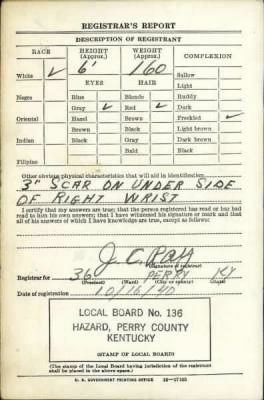 REGISTRAR'S REPORT
DESCRIPTION OF REGISTRANT
RACE
HEIGHT (Approx.)
WEIGHT (Approx.)
COMPLEXION
White ✓
6'
160
Sallow
EYES
HAIR
Light
Negro
Blue
Blonde
Ruddy
Gray ✓
Red ✓
Dark
Oriental
Hazel
Brown
Freckled ✓
Brown
Black
Light brown
Indian
Black
Gray
Dark brown
Bald
Black
Filipino
Other obvious physical characteristics that will aid in identification
3" SCAR ON UNDER SIDE
OF RIGHT WRIST
I certify that my answers are true; that the person registered has read or has had
read to him his own answers; that I have witnessed his signature or mark and that
all of his answers of which I have knowledge are true, except as follows:
J. C.
(Signature of registrar)
Registrar for 36 PERRY KY
(Precinct) (Ward) (City or county) (State)
Date of registration 10/16/40
LOCAL BOARD No. 136
HAZARD, PERRY COUNTY
KENTUCKY
(STAMP OF LOCAL BOARD)
(The stamp of the Local Board having jurisdiction of the registrant
shall be placed in the above space.)
U. S. GOVERNMENT PRINTING OFFICE 16—17105